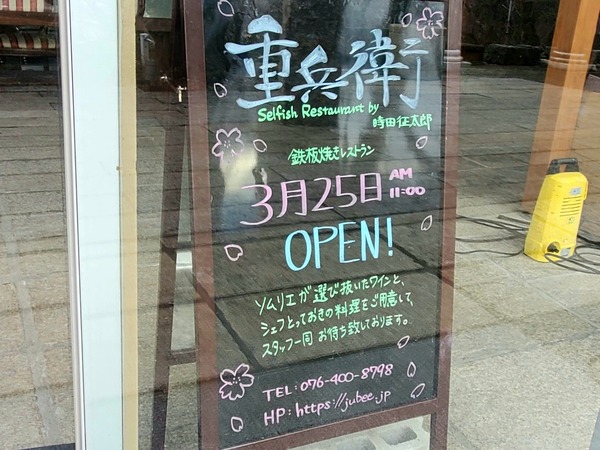 重兵衛
Selfish Restaurant by
時田征太郎
鉄板焼きレストラン
3月25日 AM 11:00
OPEN!
ソムリエが選び抜いたワインと、
シェフとっておきの料理をご用意して、
スタッフ一同 お待ち致しております。
TEL:076-400-8798
HP:https://jubee.jp